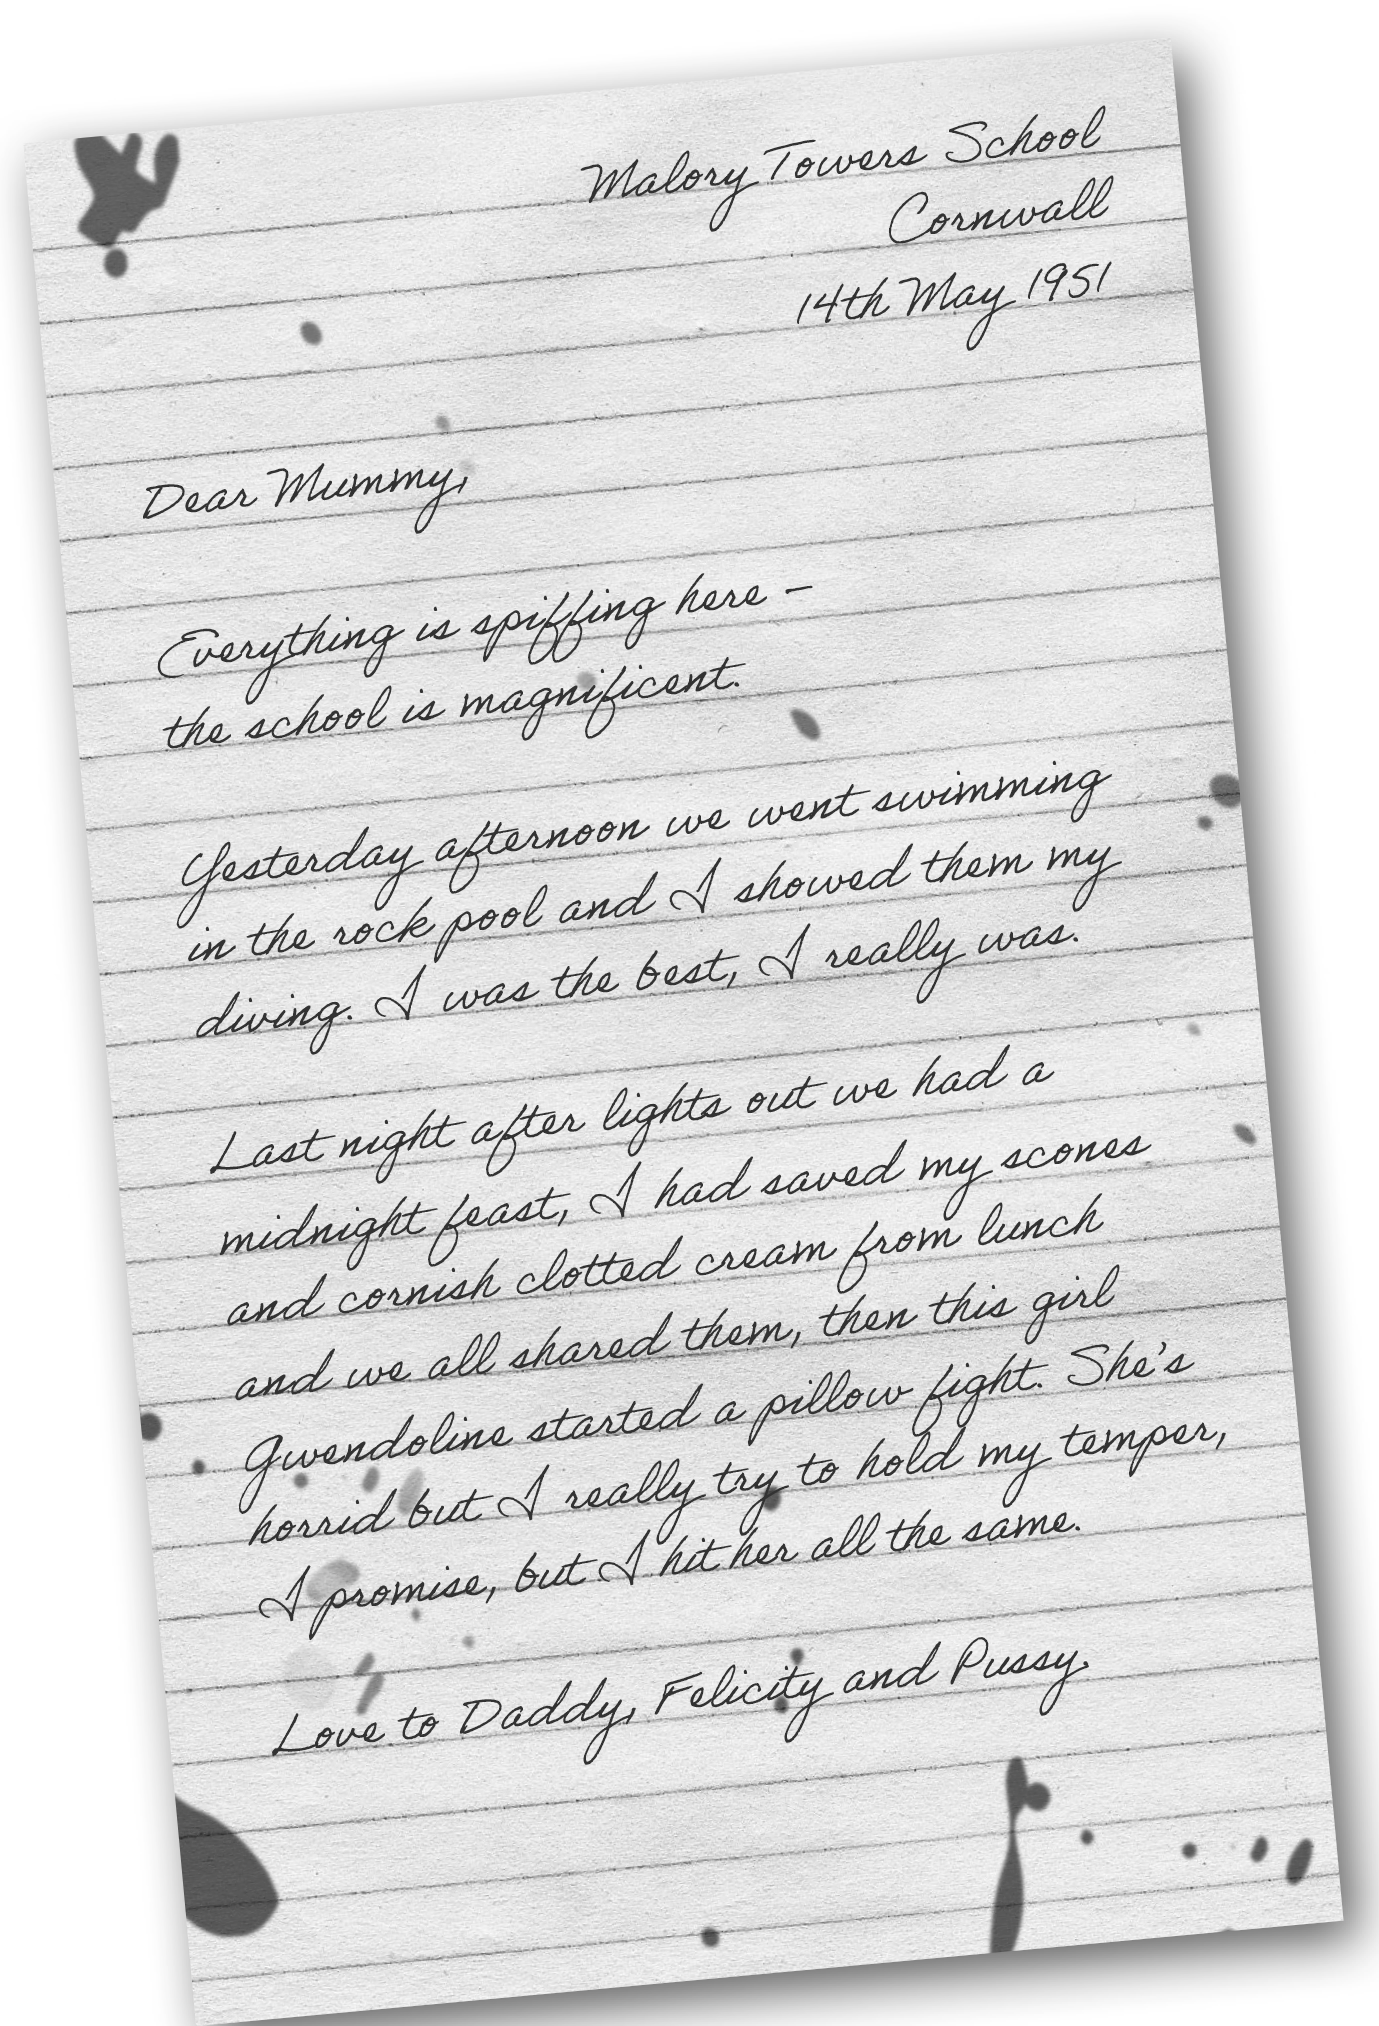 Malory Towers School
Cornwall
14th May 1951
Dear Mummy,
Everything is spiffing here –
the school is magnificent.
Yesterday afternoon we went swimming
in the rock pool and I showed them my
diving. I was the best, I really was.
Last night after lights out we had a
midnight feast, I had saved my scones
and cornish clotted cream from lunch
and we all shared them, then this girl
Gwendoline started a pillow fight. She's
horrid but I really try to hold my temper,
I promise, but I hit her all the same.
Love to Daddy, Felicity and Pussy.